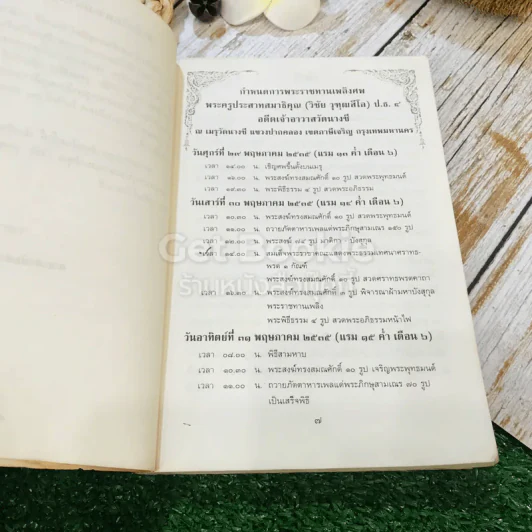 กำหนดการพระราชทานเพลิงศพ
พระครูประสาทสมาธิคุณ (วิชัย วุฑฺฒสีโล) ป.ธ. ๔
อดีตเจ้าอาวาสวัดนางชี
ณ เมรุวัดนางชี แขวงปากคลอง เขตภาษีเจริญ กรุงเทพมหานคร
วันศุกร์ที่ ๒๙ พฤษภาคม ๒๕๓๕ (แรม ๑๓ ค่ำ เดือน ๖)
เวลา ๑๔.๐๐ น. เชิญศพขึ้นตั้งบนเมรุ
เวลา ๑๖.๐๐ น. พระสงฆ์ทรงสมณศักดิ์ ๑๐ รูป สวดพระพุทธมนต์
เวลา ๑๙.๓๐ น. พระพิธีธรรม ๔ รูป สวดพระอภิธรรม
วันเสาร์ที่ ๓๐ พฤษภาคม ๒๕๓๕ (แรม ๑๔ ค่ำ เดือน ๖)
เวลา ๑๐.๓๐ น. พระสงฆ์ทรงสมณศักดิ์ ๑๐ รูป สวดพระพุทธมนต์
เวลา ๑๑.๐๐ น. ถวายภัตตาหารเพลแด่พระภิกษุสามเณร ๑๕๐ รูป
เวลา ๑๓.๐๐ น. พระสงฆ์ ๗๔ รูป มาติกา บังสุกุล
เวลา ๑๔.๐๐ น. สมเด็จพระราชาคณะแสดงพระธรรมเทศนาศราทธ-
พรต ๑ กัณฑ์
พระสงฆ์ทรงสมณศักดิ์ ๑๐ รูป สวดศราทธพรตคาถา
เวลา ๑๖.๓๐ น. พระสงฆ์ทรงสมณศักดิ์ ๓ รูป พิจารณาผ้ามหาบังสุกุล
พระราชทานเพลิง
พระพิธีธรรม ๔ รูป สวดพระอภิธรรมหน้าไฟ
วันอาทิตย์ที่ ๓๑ พฤษภาคม ๒๕๓๕ (แรม ๑๕ ค่ำ เดือน ๖)
เวลา ๐๘.๐๐ น. พิธีสามหาบ
เวลา ๑๐.๓๐ น. พระสงฆ์ทรงสมณศักดิ์ ๑๐ รูป เจริญพระพุทธมนต์
เวลา ๑๑.๐๐ น. ถวายภัตตาหารเพลแด่พระภิกษุสามเณร ๗๐ รูป
เป็นเสร็จพิธี
๗